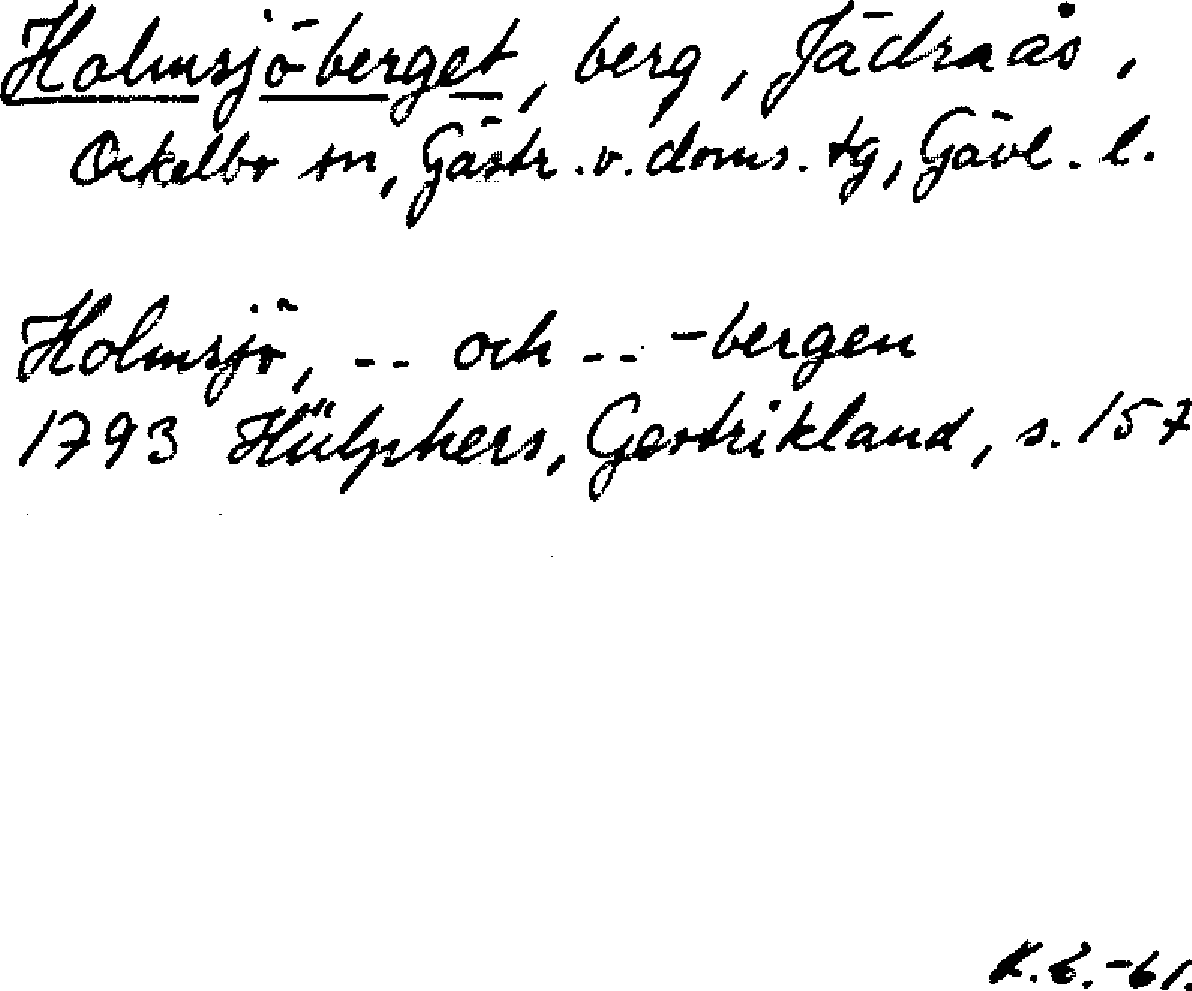 Holmsjöberget, berg, Jädraås,
Ockelbo sn, Gästr. v. doms. tg, Gävl. l.
Holmsjö, -- och -- -bergen
1793 Hülphers, Gestrikland, s. 157
K.E.-61.